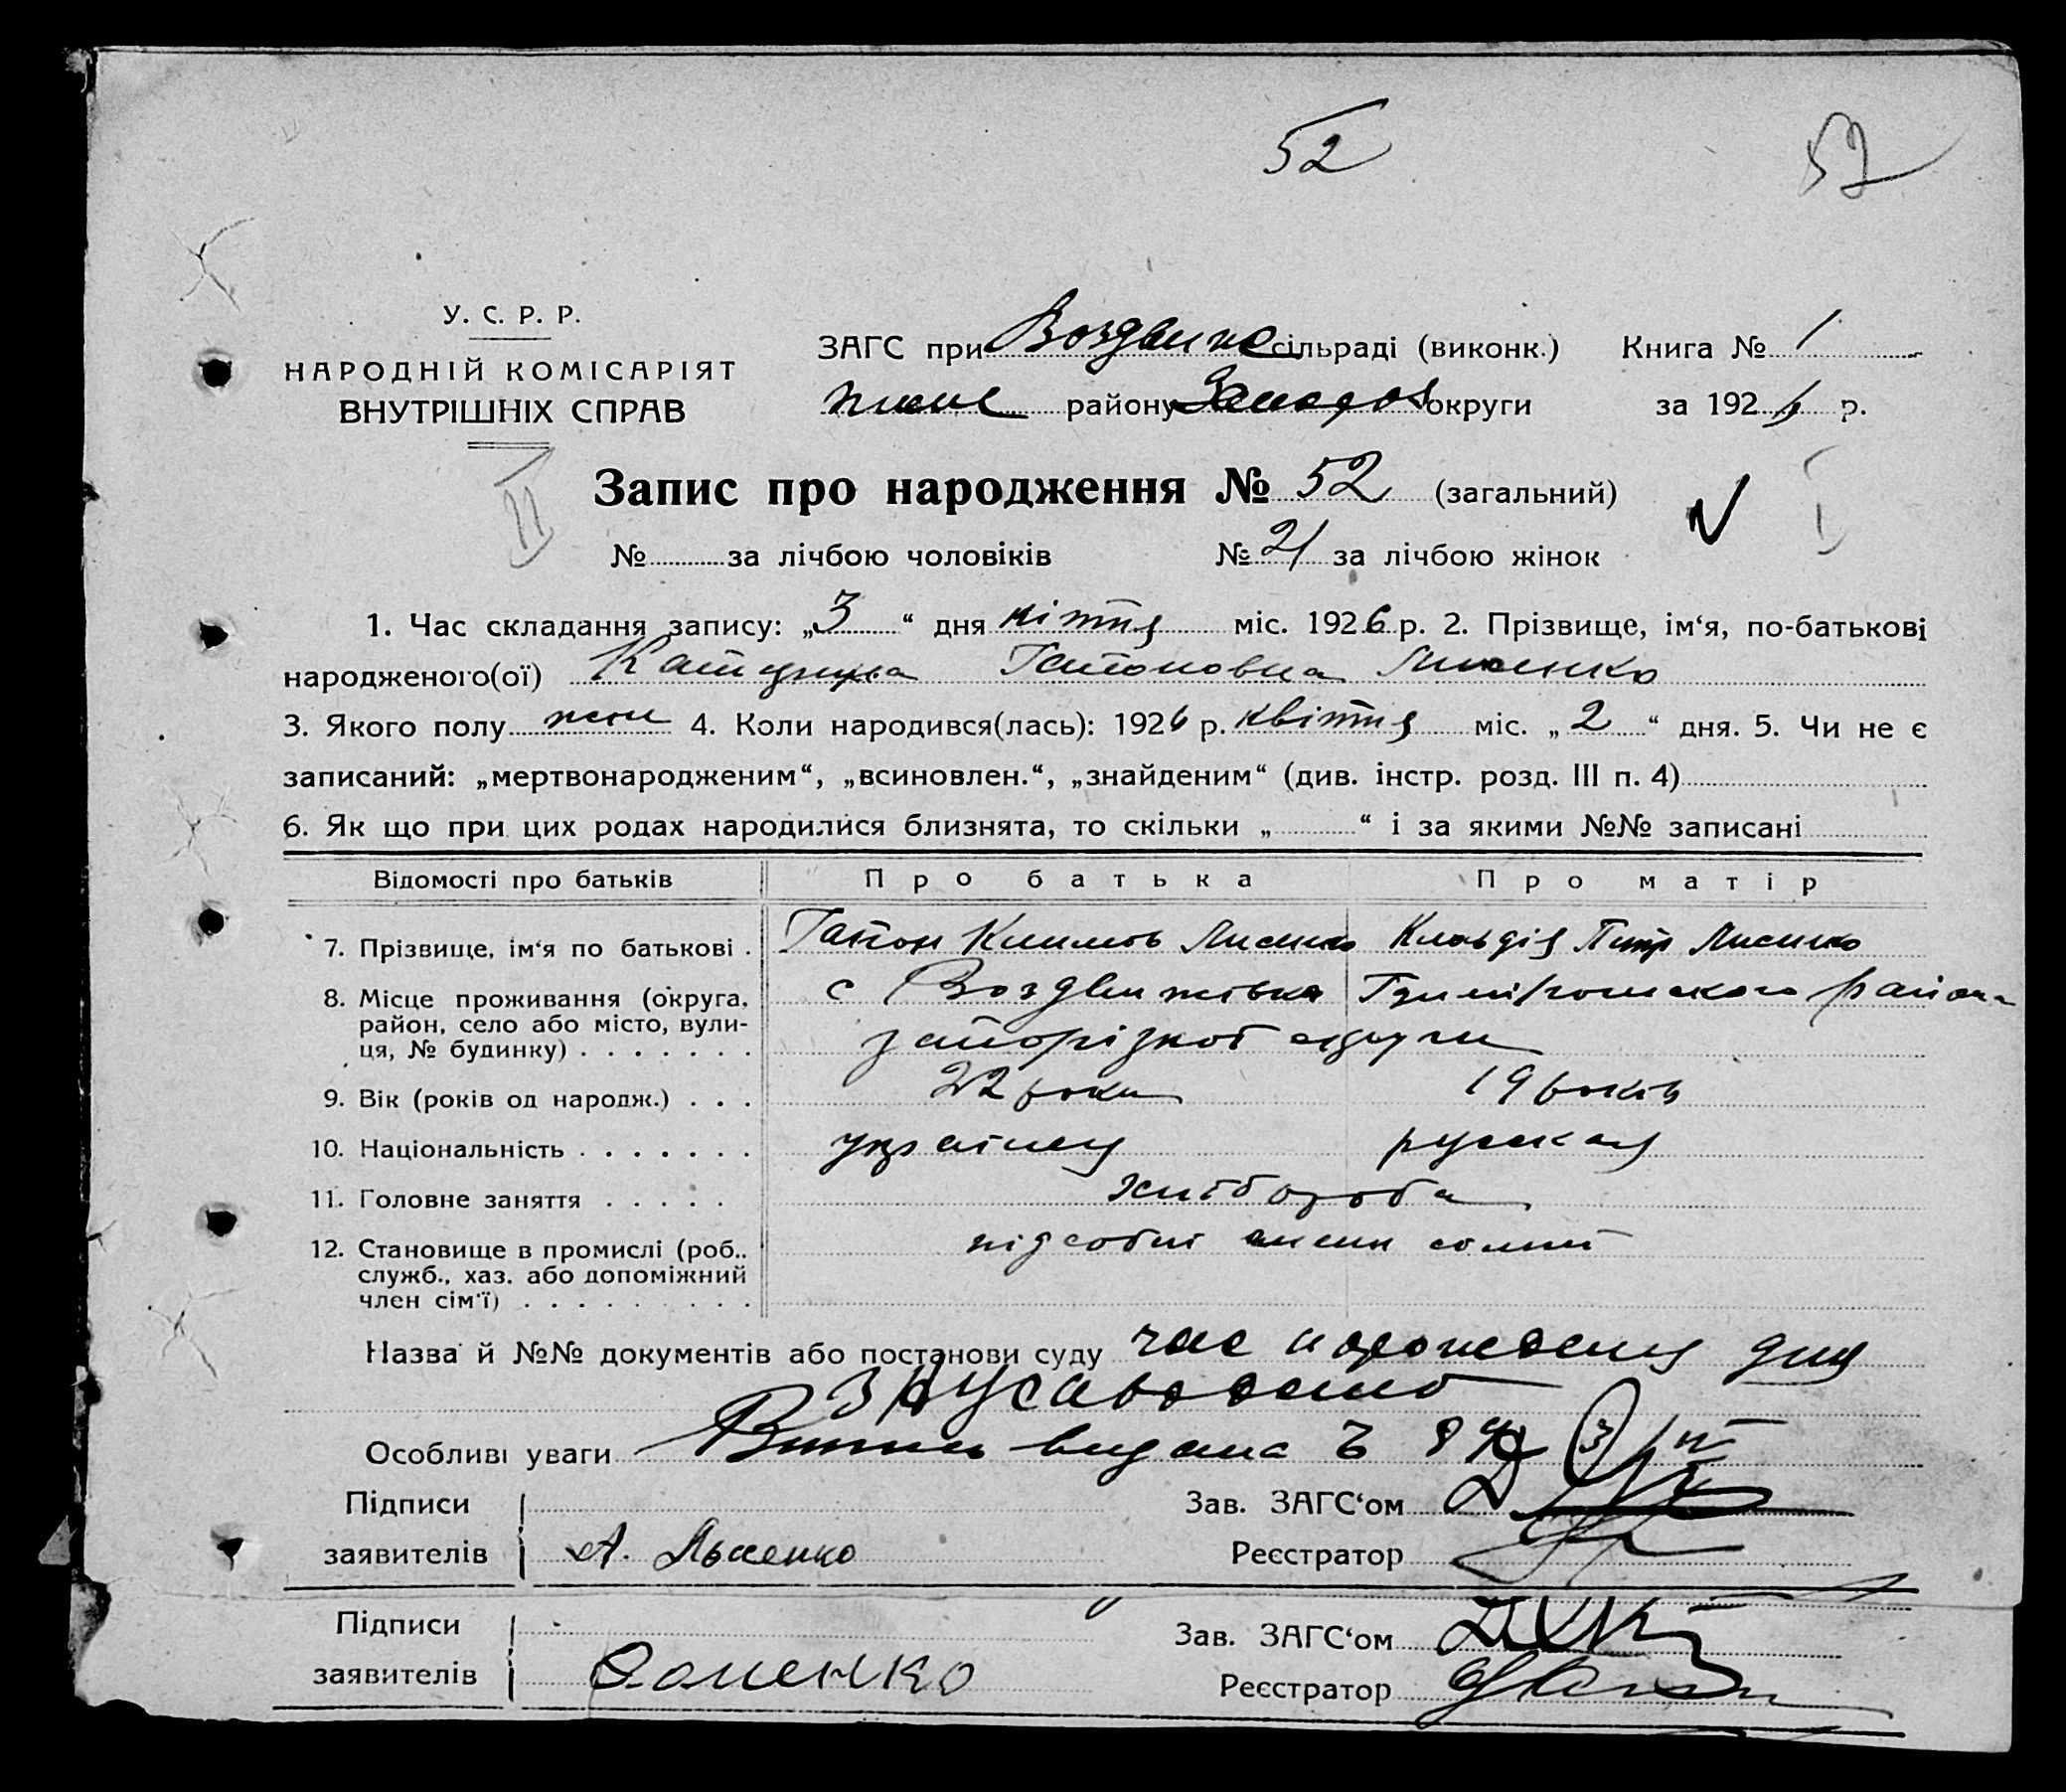 52 52
У. С. Р. Р.
НАРОДНІЙ КОМІСАРІЯТ
ВНУТРІШНІХ СПРАВ
ЗАГС при сільраді (виконк.) Книга № 1
району округи за 192 р.
Запис про народження № 52 (загальний)
№ за лічбою чоловіків № 21 за лічбою жінок
1. Час складання запису: „3“ дня міс. 1926 р. 2. Прізвище, ім‘я, по-батькові
народженого(ої) Гапоновна Лисенко
3. Якого полу жін 4. Коли народився(лась): 1926 р. квітня міс. „2“ дня. 5. Чи не є
записаний: „мертвонародженим“, „всиновлен.“, „знайденим“ (див. інстр. розд. III п. 4)
6. Як що при цих родах народилися близнята, то скільки „ “ і за якими №№ записані
Відомості про батьків Про батька Про матір
7. Прізвище, ім‘я по батькові . Гапон Климов Лисенко Клавдія Петр Лисенко
8. Місце проживання (округа, район, село або місто, вулиця, № будинку) с Воздвижівка района
запорізкої округи
9. Вік (років од народж.) 22 роки 19 років
10. Національність українец русская
11. Головне заняття хлібороба
12. Становище в промислі (роб., служб., хаз. або допоміжний член сім‘ї) підсобні
Назва й №№ документів або постанови суду час
Особливі уваги видана
Підписи заявителів А. Лысенко
Зав. ЗАГС‘ом
Реєстратор
Підписи заявителів
Зав. ЗАГС‘ом
Реєстратор